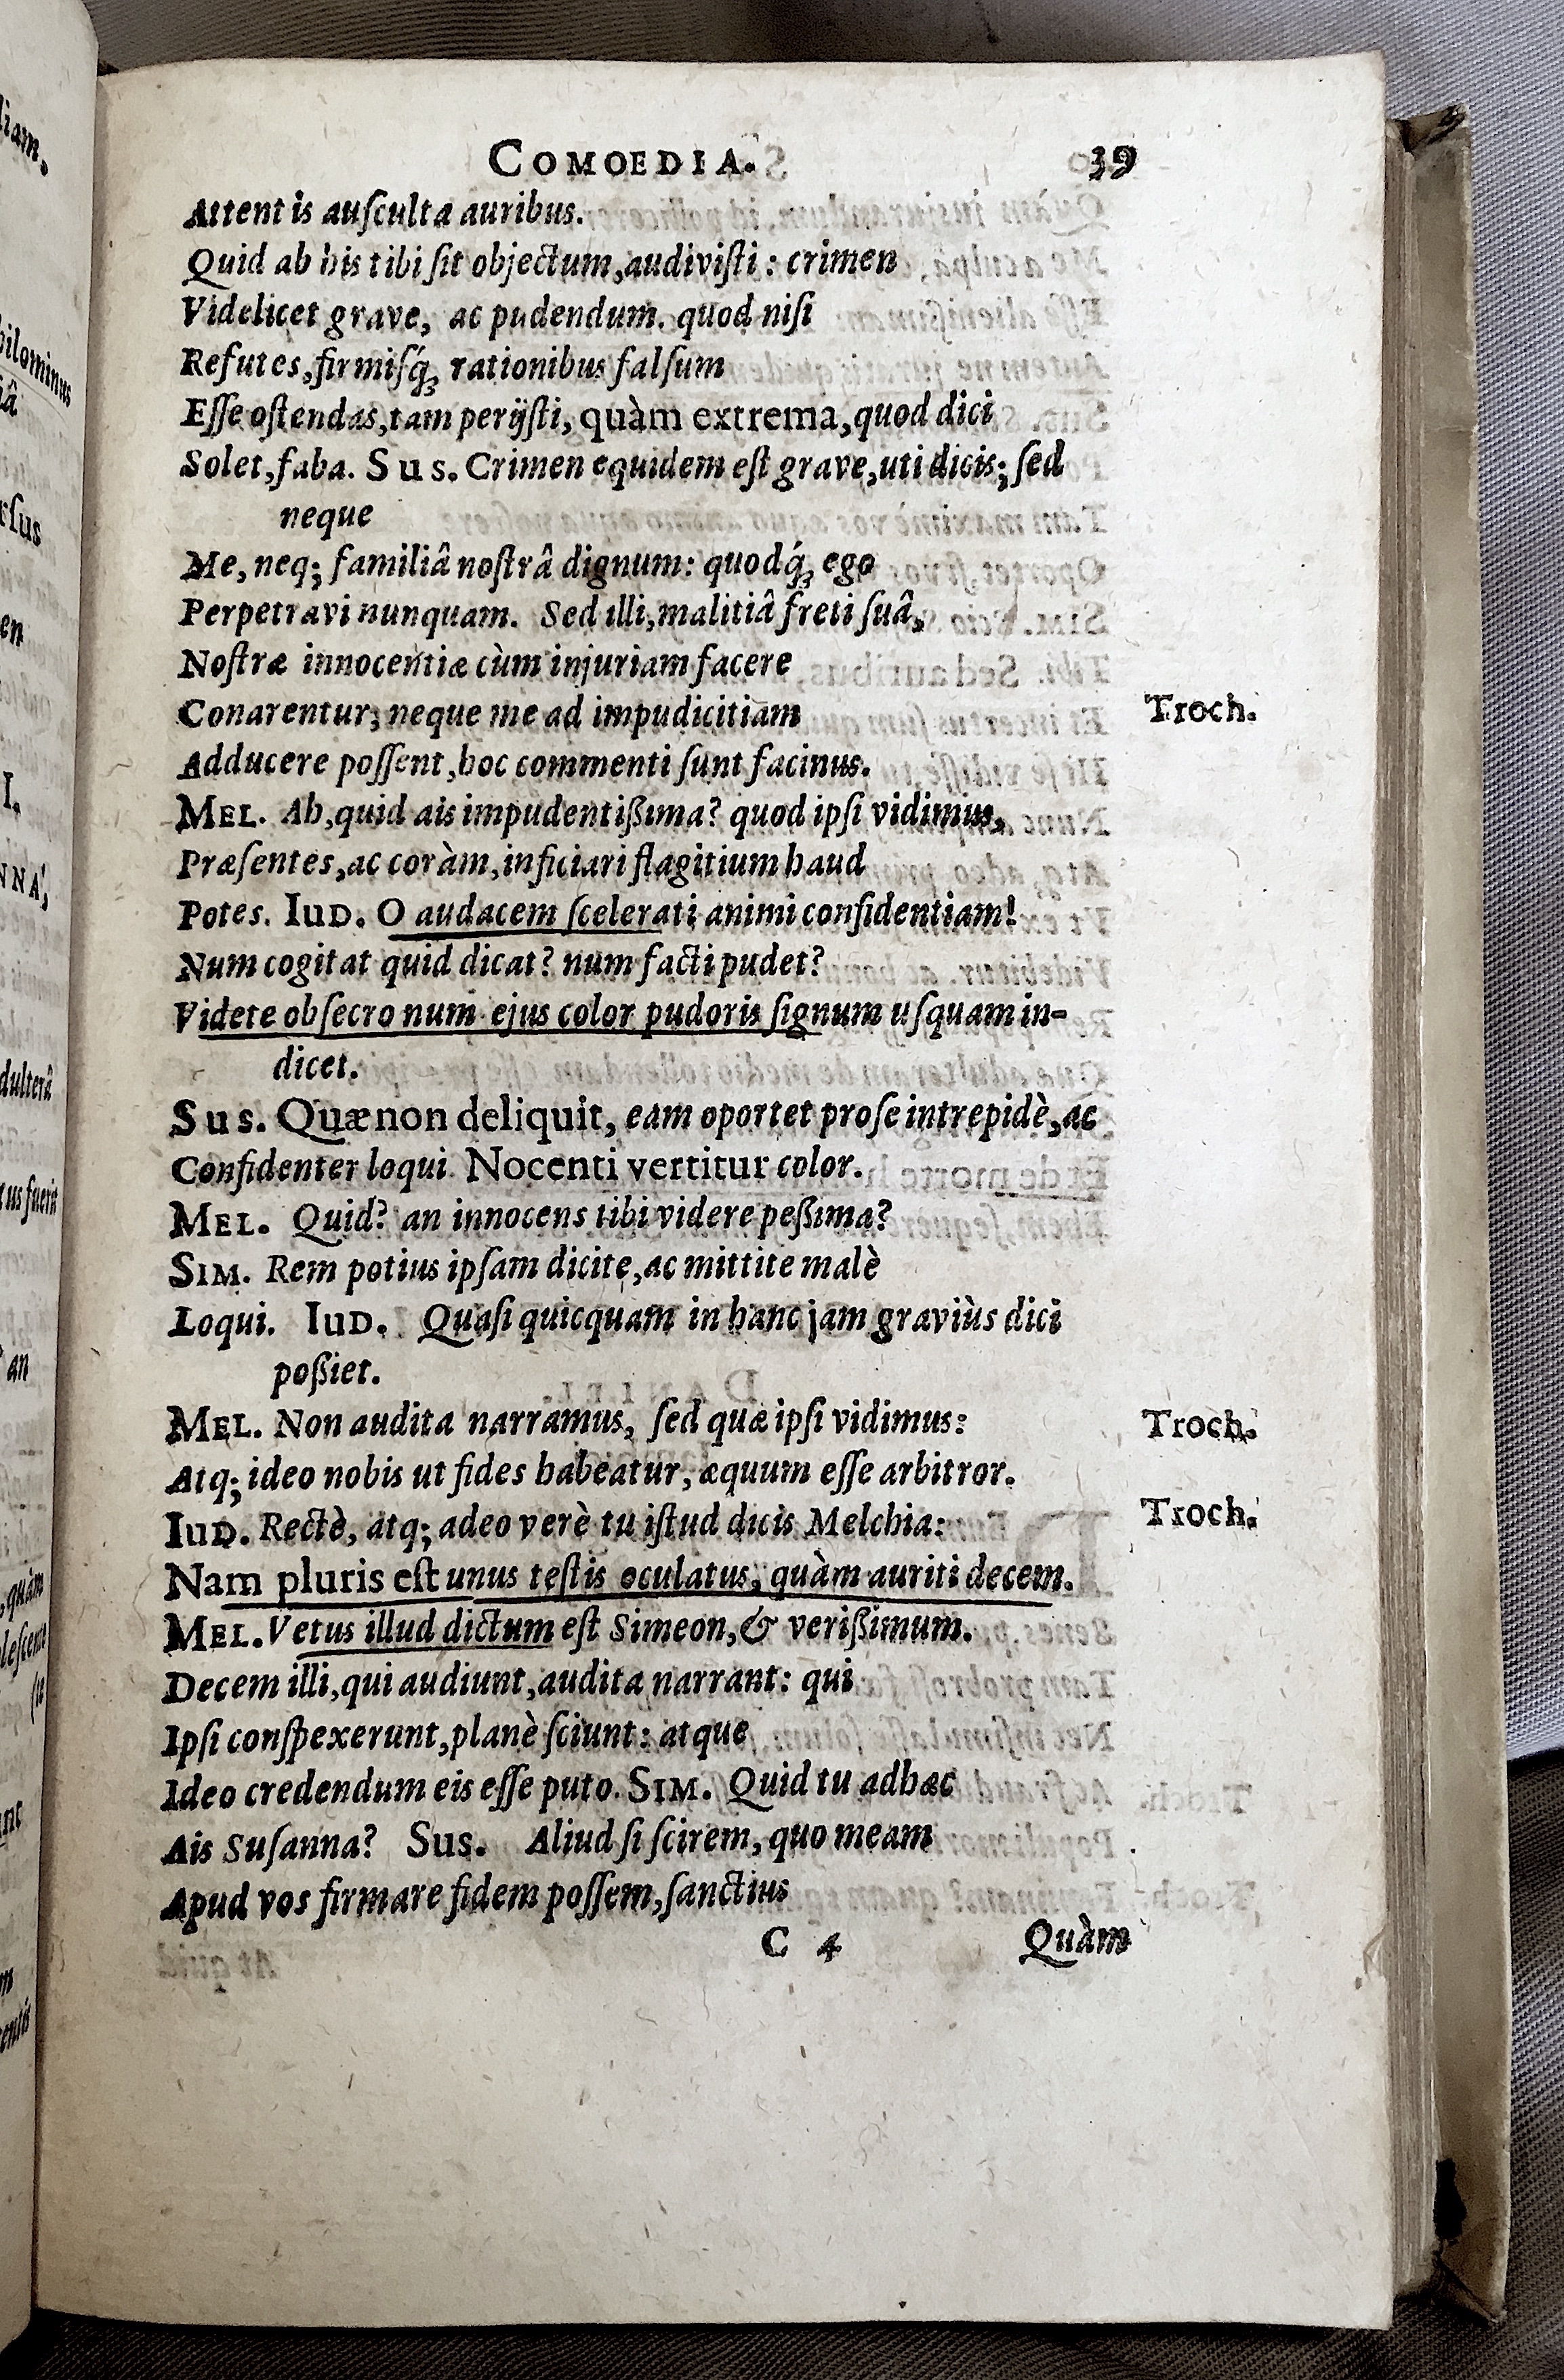 COMOEDIA. 39
Attentis ausculta auribus.
Quid ab his tibi sit objectum, audivisti: crimen
Videlicet grave, ac pudendum. quod nisi
Refutes, firmisq́; rationibus falsum
Esse ostendas, tam perijsti, quàm extrema, quod dici
Solet, faba. Sus. Crimen equidem est grave, uti dicis; sed
neque
Me, neq; familiâ nostrâ dignum: quodq́; ego
Perpetravi nunquam. Sed illi, malitiâ freti suâ,
Nostræ innocentiæ cùm injuriam facere
Conarentur; neque me ad impudicitiam Troch.
Adducere possent, hoc commenti sunt facinus.
MEL. Ah, quid ais impudentißima? quod ipsi vidimus,
Præsentes, ac coràm, inficiari flagitium haud
Potes. IUD. O audacem scelerati animi confidentiam!
Num cogitat quid dicat? num facti pudet?
Videte obsecro num ejus color pudoris signum usquam in-
dicet.
Sus. Quæ non deliquit, eam oportet pro se intrepidè, ac
Confidenter loqui. Nocenti vertitur color.
MEL. Quid? an innocens tibi videre peßima?
SIM. Rem potius ipsam dicite, ac mittite malè
Loqui. IUD. Quasi quicquam in hanc jam graviùs dici
poßiet.
MEL. Non audita narramus, sed quæ ipsi vidimus: Troch.
Atq; ideo nobis ut fides habeatur, æquum esse arbitror.
IUD. Rectè, atq; adeo verè tu istud dicis Melchia: Troch.
Nam pluris est unus testis oculatus, quàm auriti decem.
MEL. Vetus illud dictum est Simeon, & verißimum.
Decem illi, qui audiunt, audita narrant: qui
Ipsi conspexerunt, planè sciunt: atque
Ideo credendum eis esse puto. SIM. Quid tu ad hæc
Ais Susanna? Sus. Aliud si scirem, quo meam
Apud vos firmare fidem possem, sanctius
C 4 Quàm